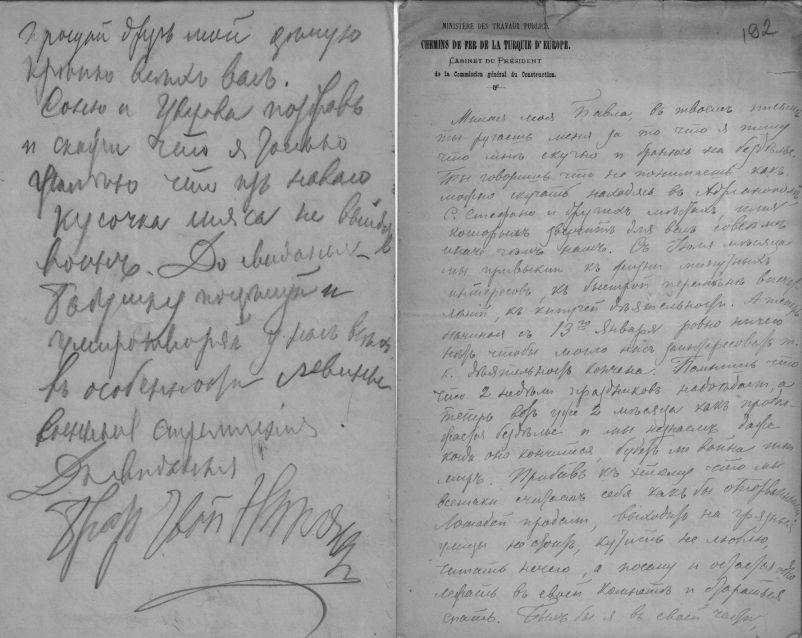 Прощай другъ мой цѣлую
крѣпко всѣхъ васъ.
Соню и Уварова поздравь
и скажи что я только
что изъ навало
кусочка мяса не выйдетъ
воинъ. До свиданья
Бабушку поцѣлуй и
умиротворяй у васъ
въ особенности
До свиданья
Братъ твой
192
MINISTÈRE DES TRAVAUX PUBLICS.
CHEMINS DE FER DE LA TURQUIE D'EUROPE.
CABINET DU PRÉSIDENT
de la Commission général du Construction.
Милая моя Павла, въ твоемъ письмѣ
ты ругаешь меня за то что я пишу
что мнѣ скучно и бранюсь на бездѣлье.
Ты говоришь что не понимаешь какъ
можно скучать находясь въ Адрианополѣ
С. Стефано и другихъ мѣстахъ, имя
которыхъ звучитъ для васъ совсѣмъ
иначе чѣмъ намъ. Съ Іюля мѣсяца
мы привыкли къ жизни минутныхъ
интересовъ, къ быстрой перемѣнѣ
къ кипучей дѣятельности. А теперь
начиная съ 13го Января ровно ничего
нѣтъ чтобы могло насъ заинтересовать т.
к. дѣятельность кончена. Помнишь что
что 2 недѣли праздниковъ надоѣдаютъ, а
теперь вотъ уже 2 мѣсяца какъ
бездѣлье и мы незнаемъ даже
когда оно кончится, будетъ ли война или
миръ. Прибавь къ этому что мы
всетаки считаемъ себя какъ бы оторванными
Лошадей продали, выходить на грязныя
улицы не стоитъ, кутить не люблю
читать нечего, а посему и остается одно
лежать въ своей комнатѣ и стараться
спать. Былъ бы я въ своей части